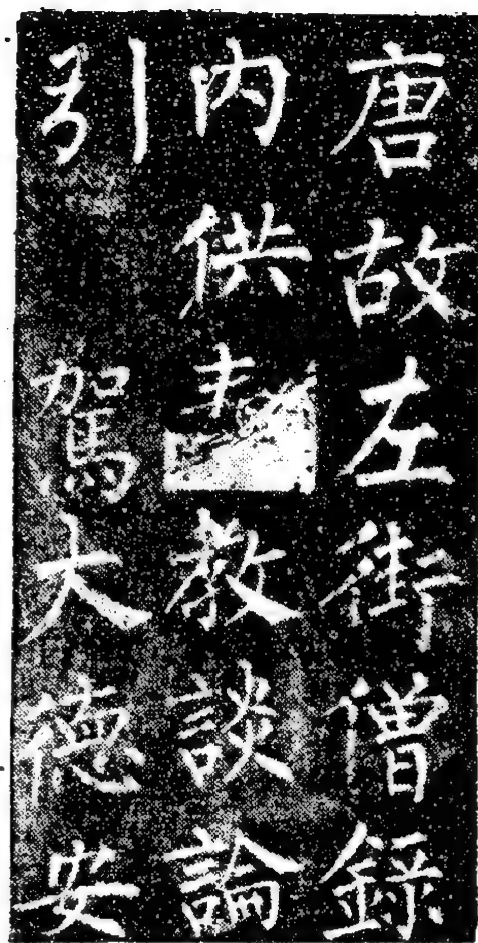 唐故左街僧錄
內供奉三教談論
引駕大德安